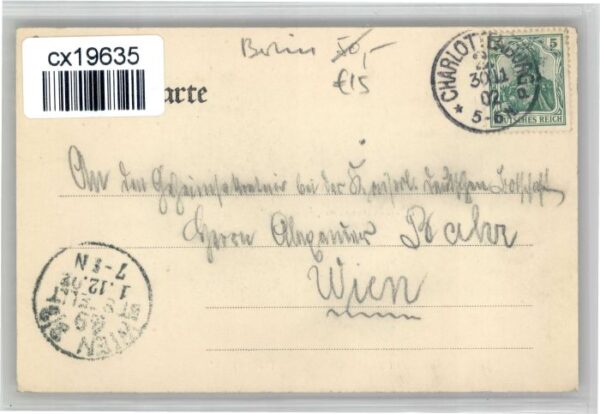 cx19635
Berlin 50,-
€15
arte
CHARLOTTENBURG
30.11
02
* 5-6 N.
5
DEUTSCHES REICH
An den Geheimsekretär bei der Kaiserl. Deutschen Botschaft
Herrn Alexander
Wien
WIEN
49
1.12.02
7-8 N